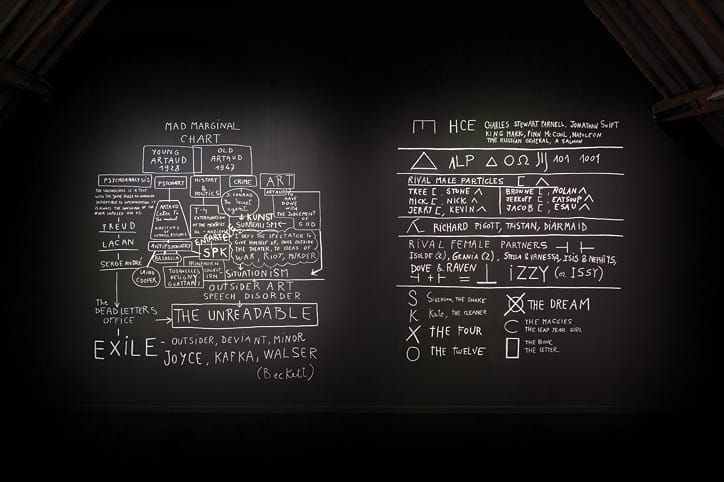 MAD MARGINAL
CHART
YOUNG
ARTAUD
1928
OLD
ARTAUD
1947
PSYCHOANALYSIS
PSYCHIATRY
HISTORY
&
POLITICS
CRIME
ART
THE UNCONSCIOUS IS A TEXT
WITH THE SAME RULES AS GRAMMAR
FREUD
LACAN
SERGE ANDRÉ
ARTAUD
Letter to
T-4
EXTERMINATION
J. CONRAD
The Secret
agent
ARTAUD TO
HAVE
DONE
WITH
THE JUDGEMENT
OF
GOD
KUNST
SURREALISM
ENTARTETE
I DEFY THE SPECTATOR TO
GIVE HIMSELF UP, ONCE OUTSIDE
THE THEATER, TO IDEAS OF
WAR, RIOT, MURDER
ANTIPSYCHIATRY
BASAGLIA
SPK
DAVID
COOPER
TOSQUELLES
DELIGNY
GUATTARI
SITUATIONISM
OUTSIDER ART
SPEECH DISORDER
The
DEAD LETTERS
OFFICE
THE UNREADABLE
EXILE - OUTSIDER, DEVIANT, MINOR
JOYCE, KAFKA, WALSER
(Beckett)
E HCE CHARLES STEWART PARNELL, JONATHAN SWIFT
KING MARK, FINN MCCOOL, NAPOLEON
THE RUSSIAN GENERAL, A SALMON
△ ALP △ O Ω 101 1001
RIVAL MALE PARTICLES [ Λ
TREE [, STONE Λ
MICK [, NICK Λ
JERRY [, KEVIN Λ
BROWNE [, NOLAN Λ
JERKOFF [, EATSOUP Λ
JACOB [, ESAU Λ
RICHARD PIGOTT, TRISTAN, DIARMAID
RIVAL FEMALE PARTNERS ⊣ ⊢
ISOLDE (2), GRANIA (2), STELLA & VANESSA, ISIS & NEPHTHYS,
DOVE & RAVEN
⊣ + ⊢ = ⊥ IZZY (or ISSY)
S Sigerson, THE SNAKE
K Kate, THE CLEANER
X THE FOUR
O THE TWELVE
THE DREAM
C THE MAGGIES
THE LEAP YEAR GIRL
□ THE BOOK
THE LETTER